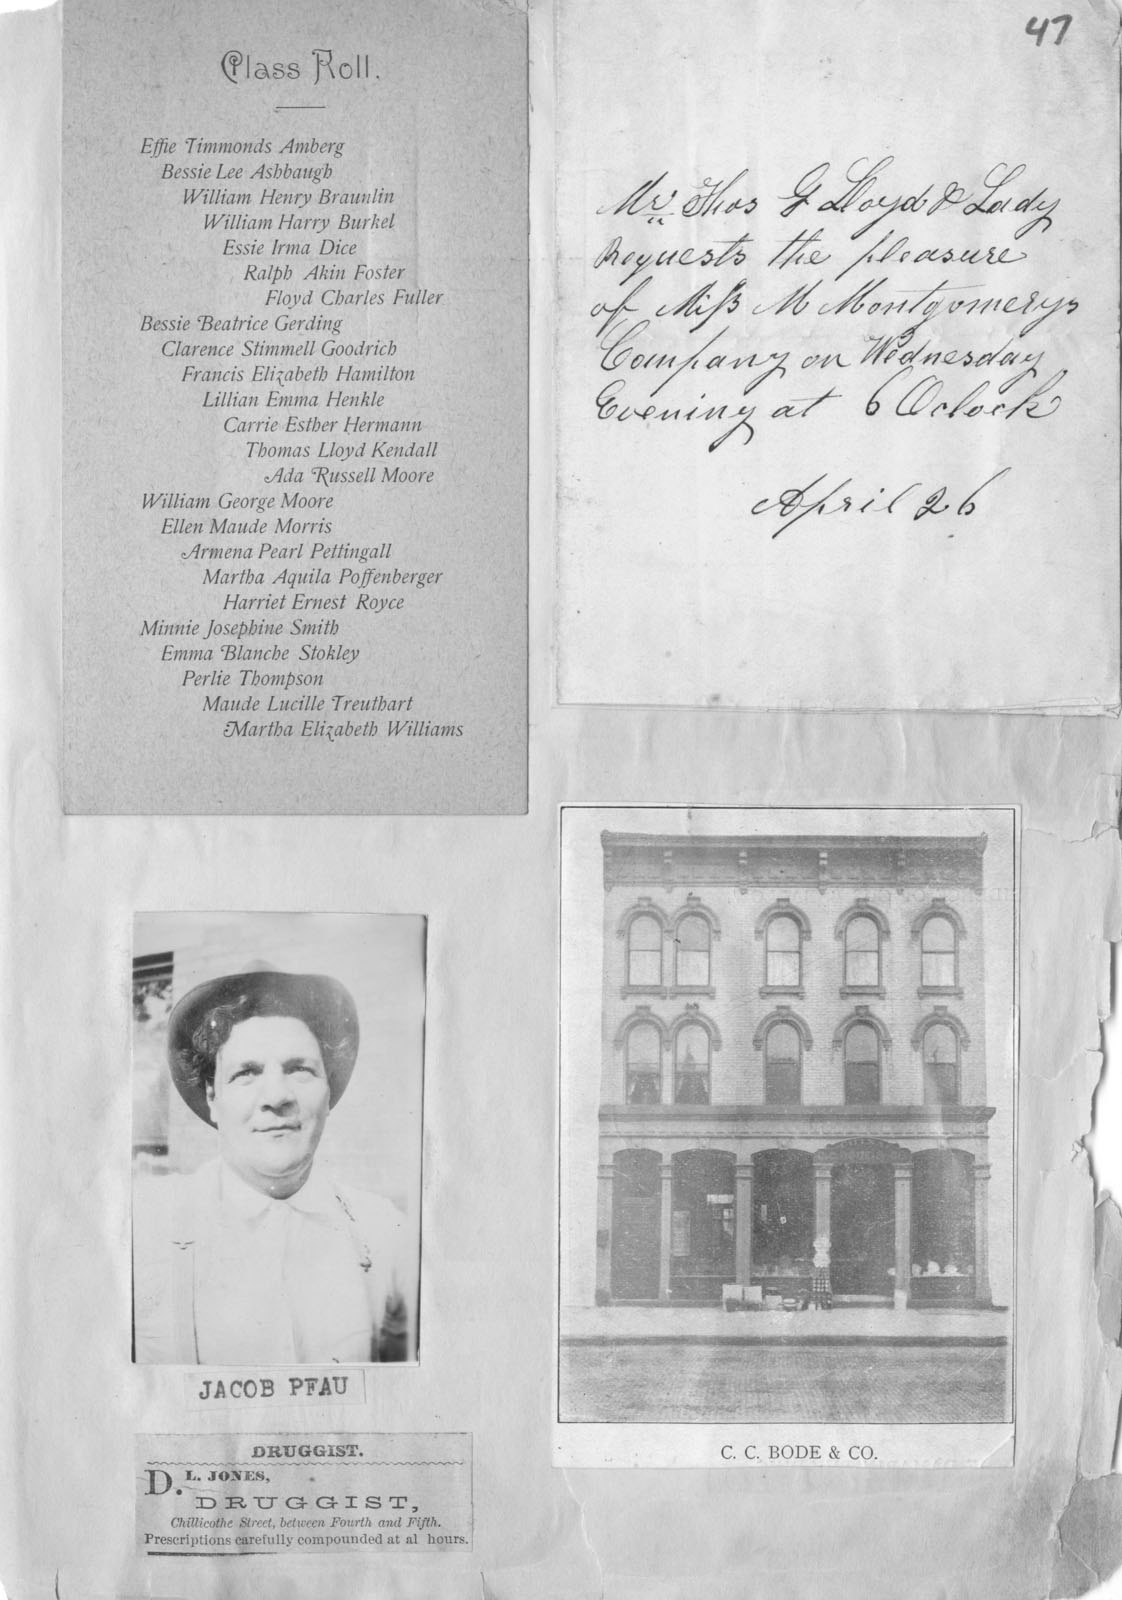 47
Class Roll.
Effie Timmonds Amberg
Bessie Lee Ashbaugh
William Henry Braunlin
William Harry Burkel
Essie Irma Dice
Ralph Akin Foster
Floyd Charles Fuller
Bessie Beatrice Gerding
Clarence Stimmell Goodrich
Francis Elizabeth Hamilton
Lillian Emma Henkle
Carrie Esther Hermann
Thomas Lloyd Kendall
Ada Russell Moore
William George Moore
Ellen Maude Morris
Armena Pearl Pettingall
Martha Aquila Poffenberger
Harriet Ernest Royce
Minnie Josephine Smith
Emma Blanche Stokley
Perlie Thompson
Maude Lucille Treuthart
Martha Elizabeth Williams
Mr Thos G Lloyd & Lady
Requests the pleasure
of Miss M Montgomerys
Company on Wednesday
Evening at 6 Oclock
April 26
JACOB PFAU
DRUGGIST.
D. L. JONES,
DRUGGIST,
Chillicothe Street, between Fourth and Fifth.
Prescriptions carefully compounded at al hours.
C. C. BODE & CO.